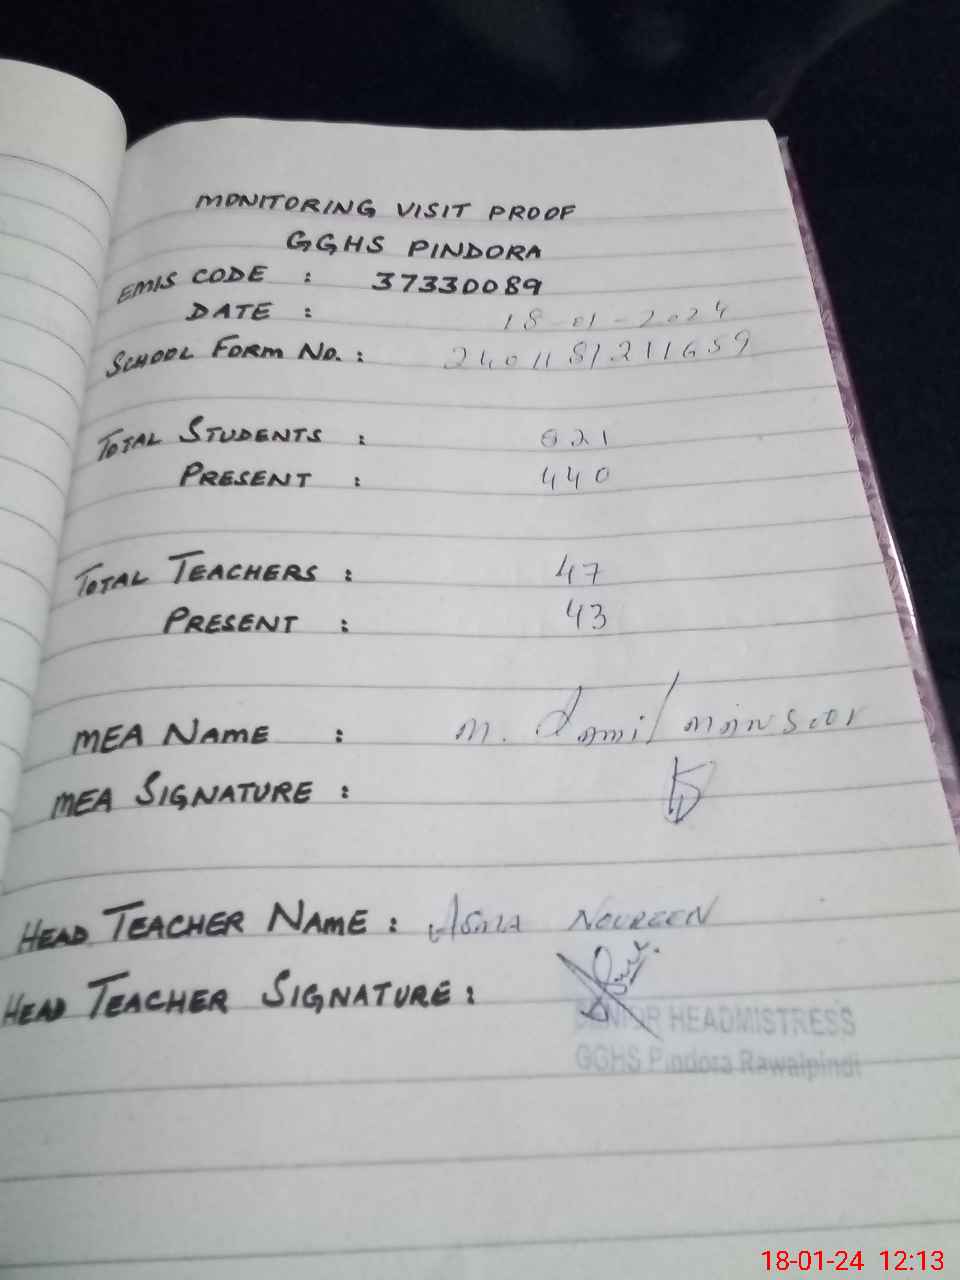 MONITORING VISIT PROOF
GGHS PINDORA
EMIS CODE : 37330089
DATE : 18-01-2024
SCHOOL FORM NO. : 240118/211659
TOTAL STUDENTS : 621
PRESENT : 440
TOTAL TEACHERS : 47
PRESENT : 43
MEA NAME : M. Jamil Mansoor
MEA SIGNATURE :
HEAD TEACHER NAME : ASMA NOUREEN
HEAD TEACHER SIGNATURE :
SENIOR HEADMISTRESS
GGHS Pindora Rawalpindi
18-01-24 12:13